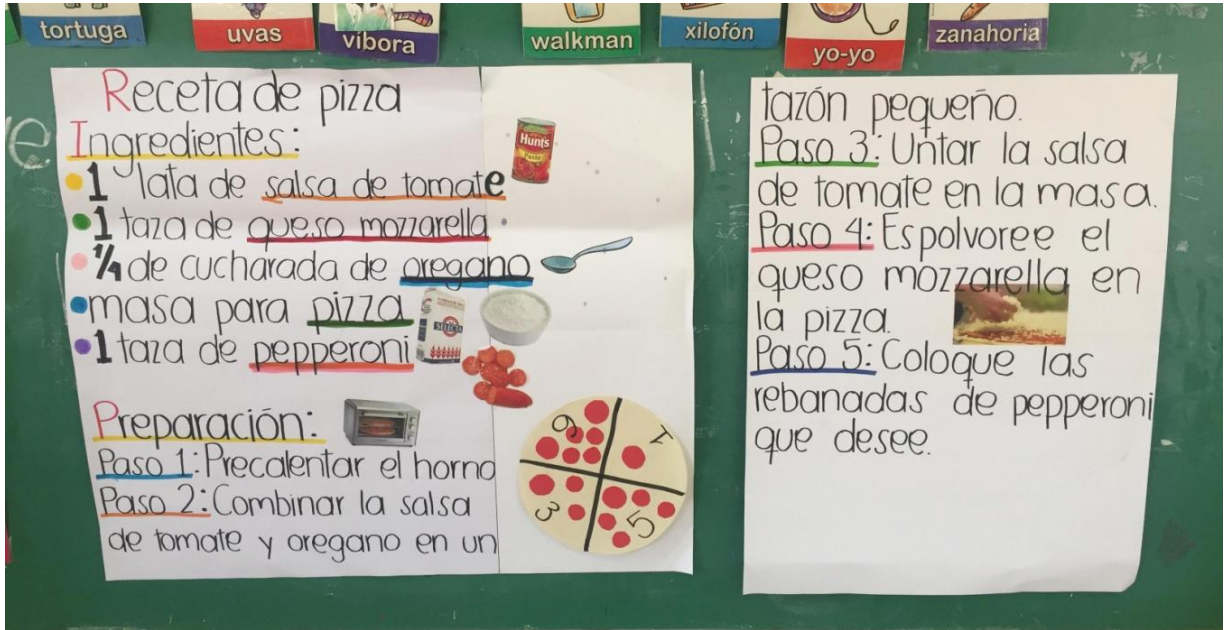 tortuga
uvas
víbora
walkman
xilofón
yo-yo
zanahoria
Receta de pizza
Ingredientes:
1 lata de salsa de tomate
1 taza de queso mozzarella
1/4 de cucharada de oregano
masa para pizza
1 taza de pepperoni
Hunt's
Paste
SELECTA
Preparación:
Paso 1: Precalentar el horno
Paso 2: Combinar la salsa
de tomate y oregano en un
6
1
3
5
tazón pequeño.
Paso 3: Untar la salsa
de tomate en la masa.
Paso 4: Espolvoree el
queso mozzarella en
la pizza.
Paso 5: Coloque las
rebanadas de pepperoni
que desee.